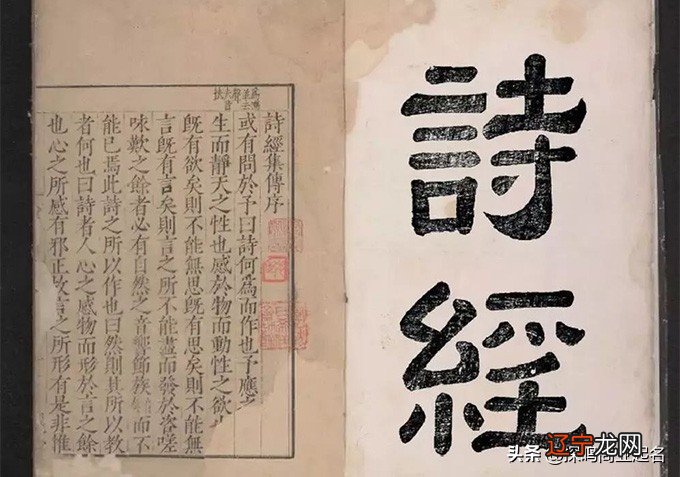 詩經
詩經集傳序
或有問於予曰詩何為而作也予應
生而靜天之性也感於物而動性之欲
既有欲矣則不能無思既有思矣則不能無
言既有言矣則言之所不能盡而發於咨嗟
味歎之餘者必有自然之音響節族而不
能已焉此詩之所以作也曰然則其所以教
者何也曰詩者人心之感物而形於言之餘
也心之所感有邪正故言之所形有是非惟
辽宁龙网
头条 起名